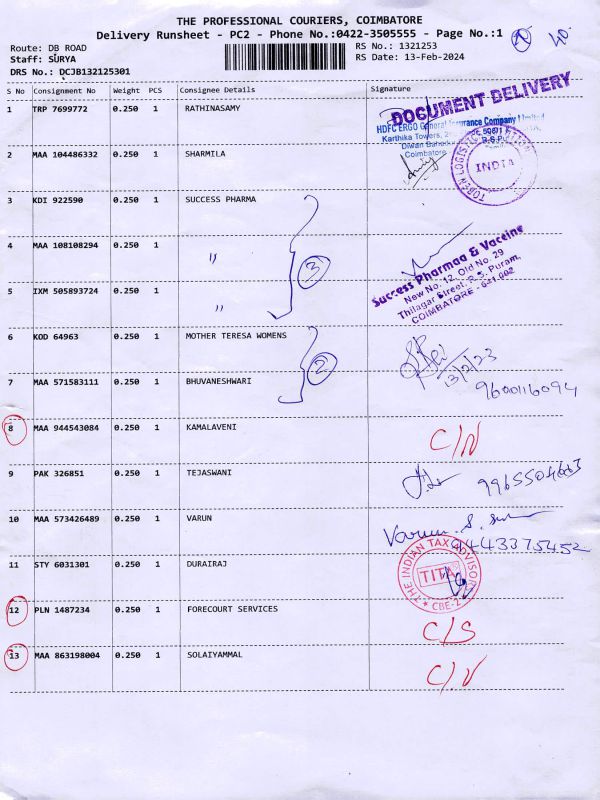 THE PROFESSIONAL COURIERS, COIMBATORE
Delivery Runsheet - PC2 - Phone No.:0422-3505555 - Page No.:1
40
Route: DB ROAD
RS No.: 1321253
Staff: SURYA
RS Date: 13-Feb-2024
DRS No.: DCJB132125301
S No Consignment No Weight PCS Consignee Details Signature
1 TRP 7699772 0.250 1 RATHINASAMY
DOCUMENT DELIVERY
HDFC ERGO General Insurance Company Limited
Karthika Towers,
Diwan Bahadur
Coimbatore
2 MAA 104486332 0.250 1 SHARMILA
INDIA
3 KDI 922590 0.250 1 SUCCESS PHARMA
4 MAA 108108294 0.250 1 "
3
Success Pharmaa & Vaccine
New No. 12, Old No. 29
Thilagar Street, R.S. Puram,
COIMBATORE - 641 002
5 IXM 505893724 0.250 1 "
6 KOD 64963 0.250 1 MOTHER TERESA WOMENS
2
13/2/23
7 MAA 571583111 0.250 1 BHUVANESHWARI
9600116094
8 MAA 944543084 0.250 1 KAMALAVENI C/N
9 PAK 326851 0.250 1 TEJASWANI
10 MAA 573426489 0.250 1 VARUN
Varun. S.
9443375452
11 STY 6031301 0.250 1 DURAIRAJ
THE INDIAN TAX ADVISOR
TITA
CBE-2
12 PLN 1487234 0.250 1 FORECOURT SERVICES C/S
13 MAA 863198004 0.250 1 SOLAIYAMMAL C/N